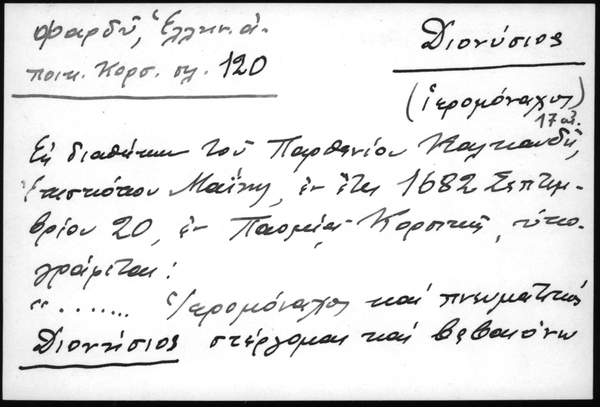 Φαρδύ, Ἑλλην. ἀ-
ποικ. Κορσ. σελ. 120
Διονύσιος
(ἱερομόναχος)
17 αἰ.
Ἐν διαθήκῃ τοῦ Παρθενίου Καλκανδῆ,
Ἐπισκόπου Μαΐνης, ἐν ἔτει 1682 Σεπτεμ-
βρίου 20, ἐν Παομίᾳ Κορσικῆς, ὑπο-
γράφεται:
"....... Ἱερομόναχος καί πνευματικός
Διονύσιος στέργομαι καί βεβαιόνω